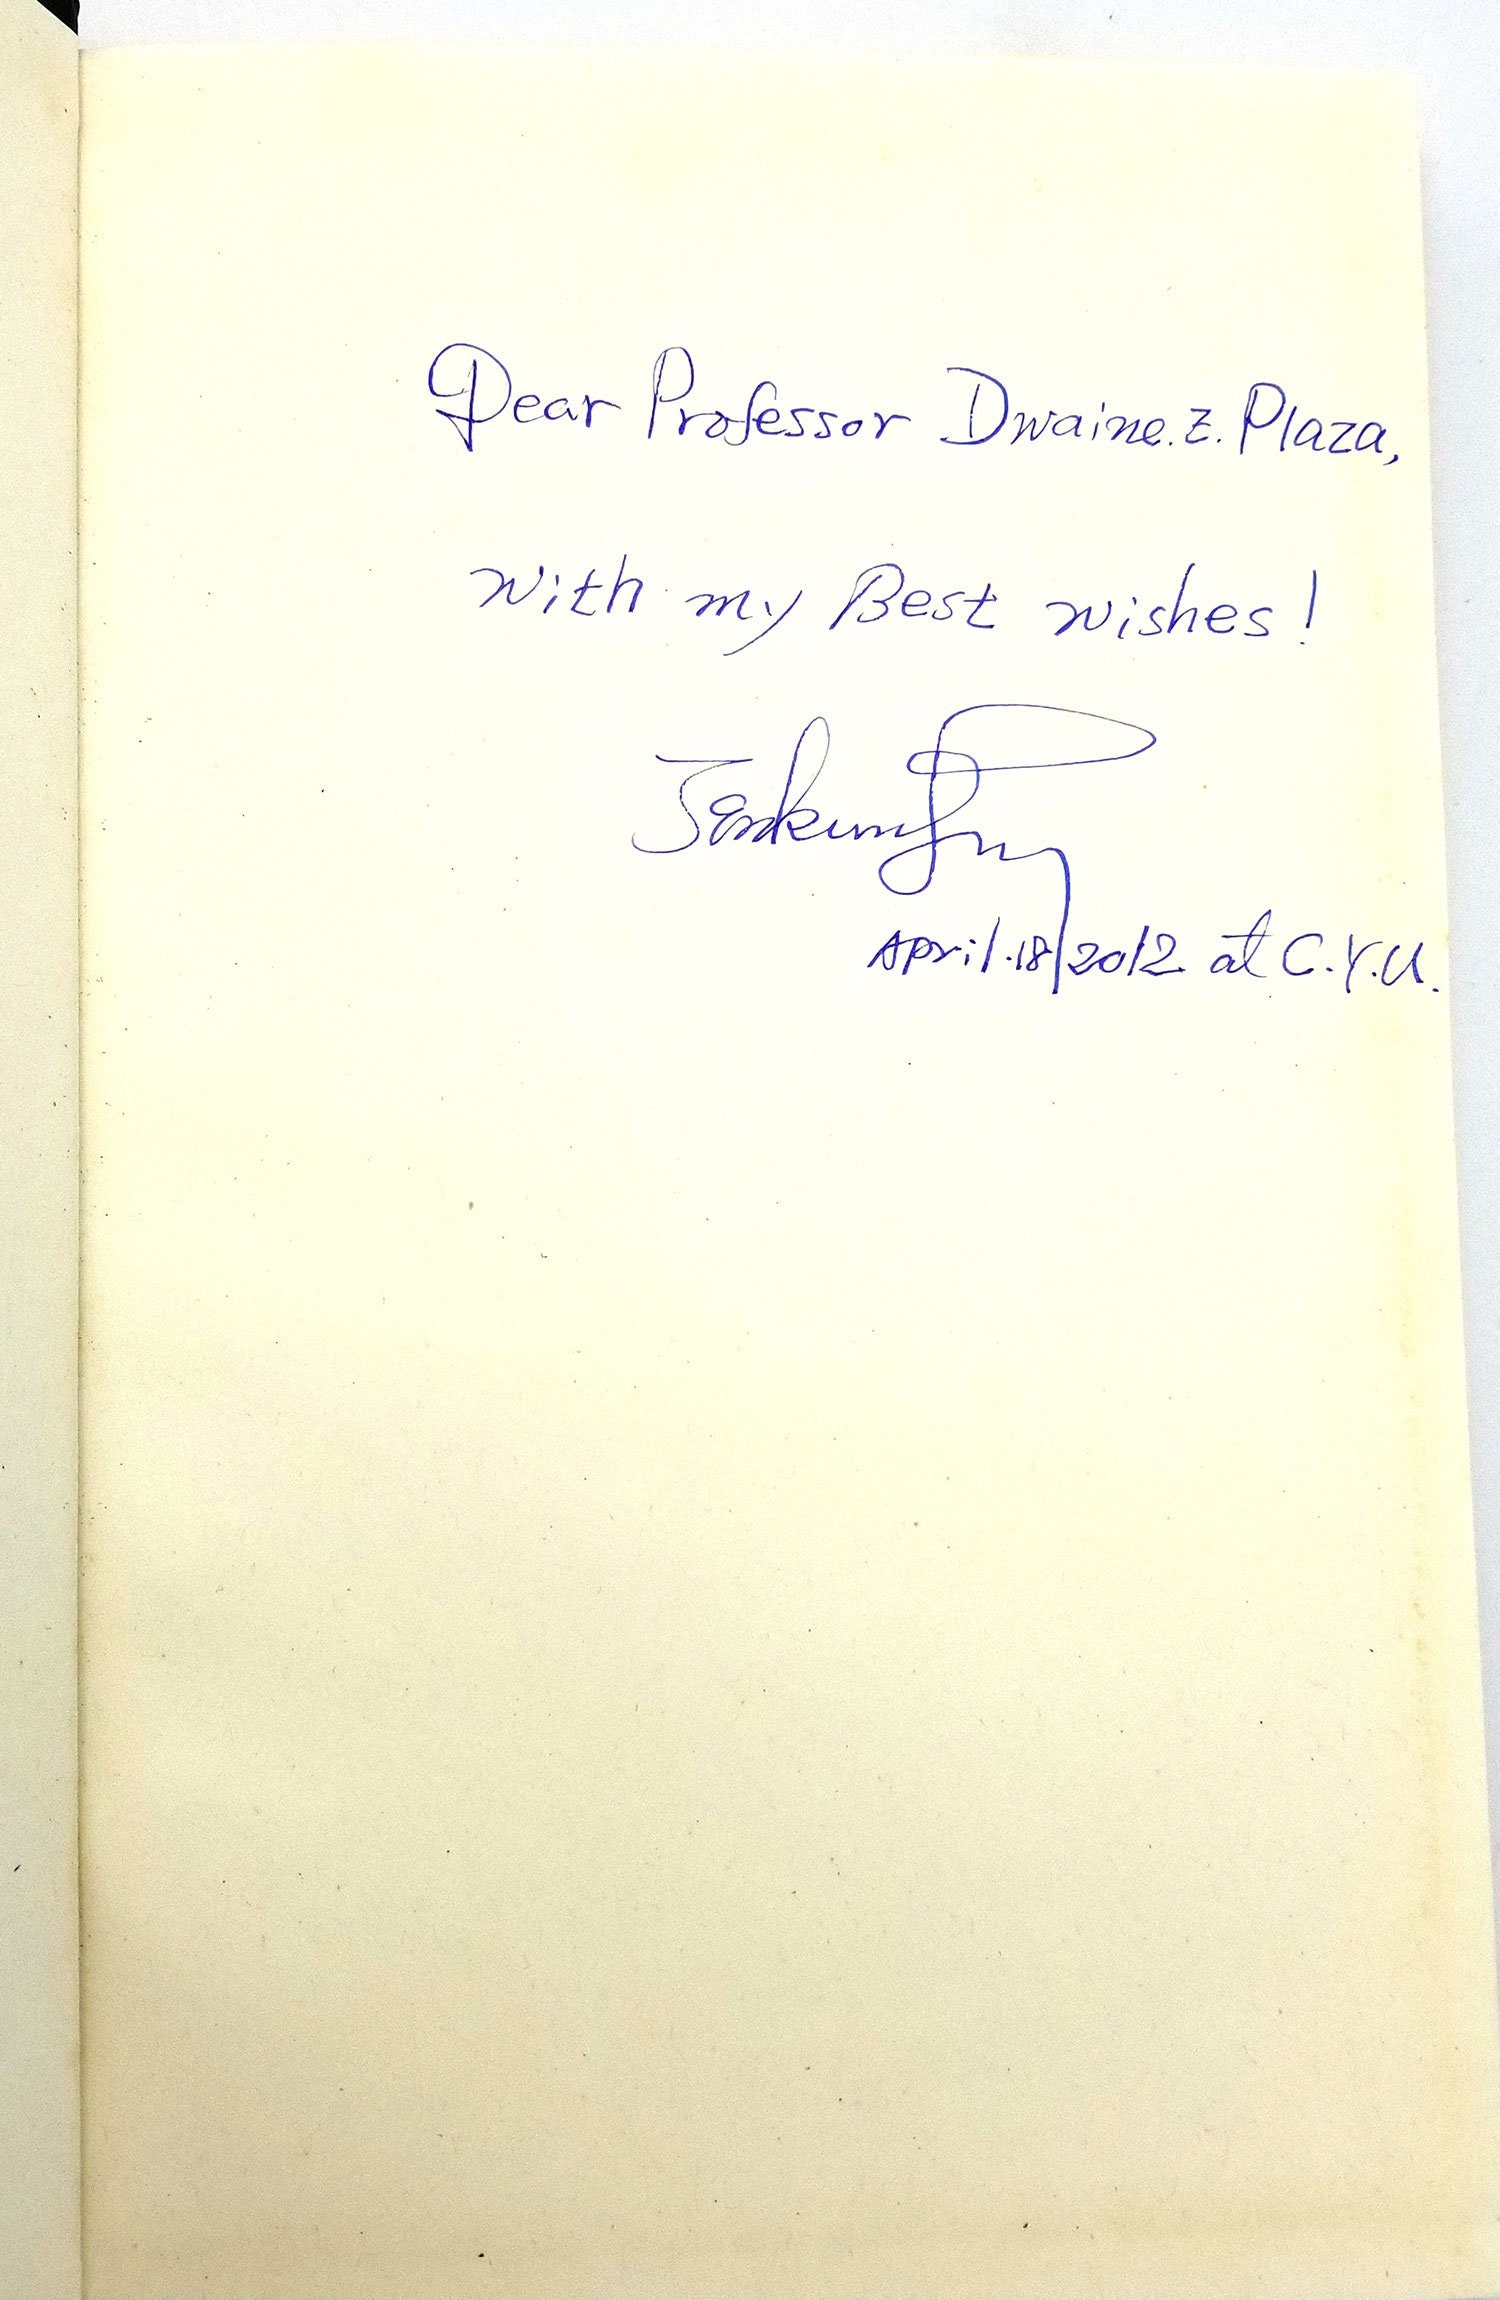 Dear Professor Dwaine. Z. Plaza,
with my Best wishes!
April. 18/2012 at C.Y.U.